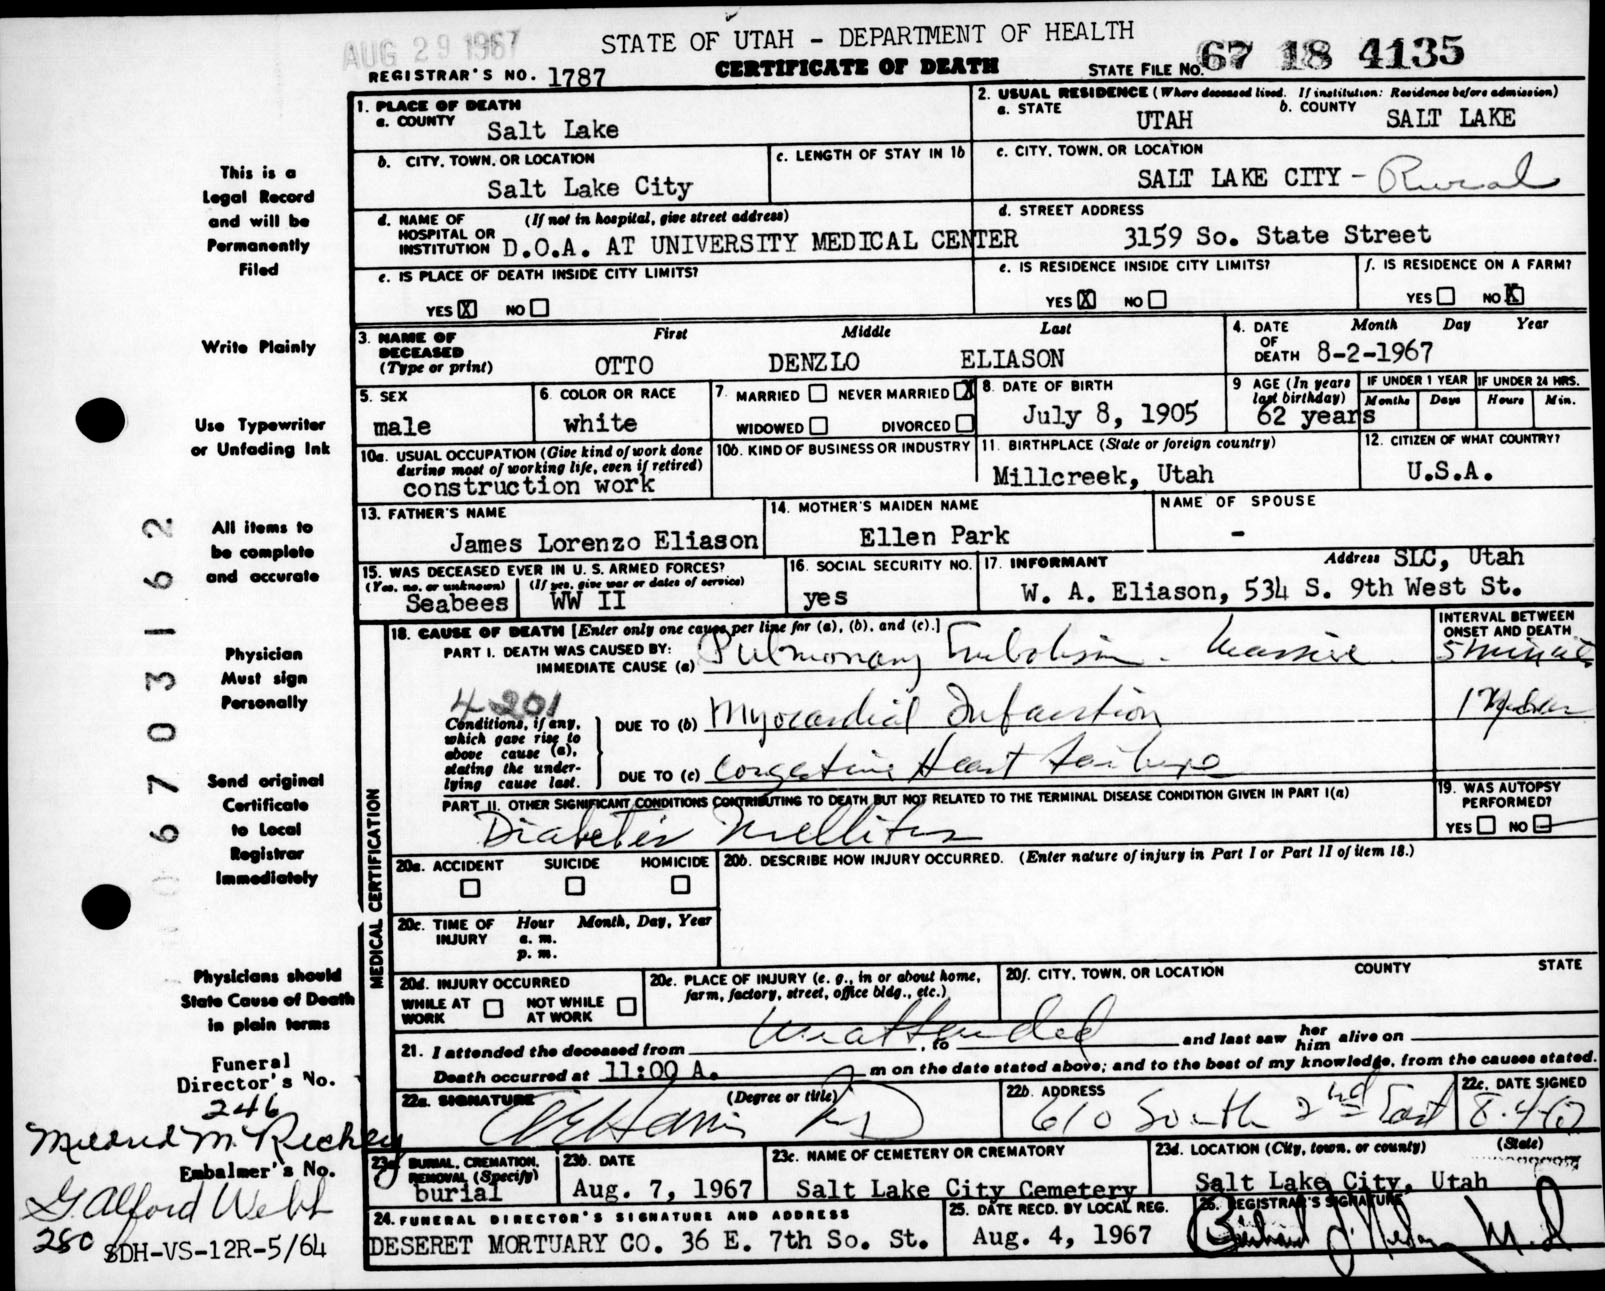 AUG 29 1967
STATE OF UTAH - DEPARTMENT OF HEALTH
CERTIFICATE OF DEATH
REGISTRAR'S NO. 1787
STATE FILE NO. 67 18 4135
1. PLACE OF DEATH
a. COUNTY Salt Lake
2. USUAL RESIDENCE (Where deceased lived. If institution: Residence before admission)
a. STATE UTAH b. COUNTY SALT LAKE
b. CITY, TOWN, OR LOCATION Salt Lake City
c. LENGTH OF STAY IN 1b
c. CITY, TOWN, OR LOCATION
SALT LAKE CITY - Rural
d. NAME OF HOSPITAL OR INSTITUTION (If not in hospital, give street address)
D.O.A. AT UNIVERSITY MEDICAL CENTER
d. STREET ADDRESS
3159 So. State Street
e. IS PLACE OF DEATH INSIDE CITY LIMITS?
YES X NO
e. IS RESIDENCE INSIDE CITY LIMITS?
YES X NO
f. IS RESIDENCE ON A FARM?
YES NO X
3. NAME OF DECEASED (Type or print)
First Middle Last
OTTO DENZLO ELIASON
4. DATE OF DEATH Month Day Year
8-2-1967
5. SEX
male
6. COLOR OR RACE
white
7. MARRIED NEVER MARRIED X
WIDOWED DIVORCED
8. DATE OF BIRTH
July 8, 1905
9 AGE (In years last birthday)
62 years
IF UNDER 1 YEAR
Months Days
IF UNDER 24 HRS.
Hours Min.
10a. USUAL OCCUPATION (Give kind of work done during most of working life, even if retired)
construction work
10b. KIND OF BUSINESS OR INDUSTRY
11. BIRTHPLACE (State or foreign country)
Millcreek, Utah
12. CITIZEN OF WHAT COUNTRY?
U.S.A.
13. FATHER'S NAME
James Lorenzo Eliason
14. MOTHER'S MAIDEN NAME
Ellen Park
NAME OF SPOUSE
-
15. WAS DECEASED EVER IN U. S. ARMED FORCES?
(Yes, no, or unknown) (If yes, give war or dates of service)
Seabees WW II
16. SOCIAL SECURITY NO.
yes
17. INFORMANT Address SLC, Utah
W. A. Eliason, 534 S. 9th West St.
MEDICAL CERTIFICATION
18. CAUSE OF DEATH [Enter only one cause per line for (a), (b), and (c).]
INTERVAL BETWEEN ONSET AND DEATH
PART I. DEATH WAS CAUSED BY:
IMMEDIATE CAUSE (a) Pulmonary Embolism - Massive 5 minutes
4201
Conditions, if any, which gave rise to above cause (a), stating the underlying cause last.
DUE TO (b) Myocardial Infarction
DUE TO (c) Congestive Heart Failure
PART II. OTHER SIGNIFICANT CONDITIONS CONTRIBUTING TO DEATH BUT NOT RELATED TO THE TERMINAL DISEASE CONDITION GIVEN IN PART I(a)
Diabetes Mellitus
19. WAS AUTOPSY PERFORMED?
YES NO
20a. ACCIDENT SUICIDE HOMICIDE
20b. DESCRIBE HOW INJURY OCCURRED. (Enter nature of injury in Part I or Part II of item 18.)
20c. TIME OF INJURY Hour Month, Day, Year
a. m.
p. m.
20d. INJURY OCCURRED
WHILE AT WORK NOT WHILE AT WORK
20e. PLACE OF INJURY (e. g., in or about home, farm, factory, street, office bldg., etc.)
20f. CITY, TOWN, OR LOCATION COUNTY STATE
21. I attended the deceased from Unattended, to and last saw her him alive on
Death occurred at 11:00 A. m on the date stated above; and to the best of my knowledge, from the causes stated.
22a. SIGNATURE (Degree or title)
22b. ADDRESS
610 South 2nd East
22c. DATE SIGNED
8-4-67
23a. BURIAL, CREMATION, REMOVAL (Specify)
burial
23b. DATE
Aug. 7, 1967
23c. NAME OF CEMETERY OR CREMATORY
Salt Lake City Cemetery
23d. LOCATION (City, town, or county) (State)
Salt Lake City, Utah
24. FUNERAL DIRECTOR'S SIGNATURE AND ADDRESS
DESERET MORTUARY CO. 36 E. 7th So. St.
25. DATE RECD. BY LOCAL REG.
Aug. 4, 1967
26. REGISTRAR'S SIGNATURE
This is a
Legal Record
and will be
Permanently
Filed
Write Plainly
Use Typewriter
or Unfading Ink
All items to
be complete
and accurate
Physician
Must sign
Personally
Send original
Certificate
to Local
Registrar
Immediately
Physicians should
State Cause of Death
in plain terms
Funeral
Director's No.
246
Mildred M. Richey
Embalmer's No.
G. Alford Webb
280
SDH-VS-12R-5/64
06703162